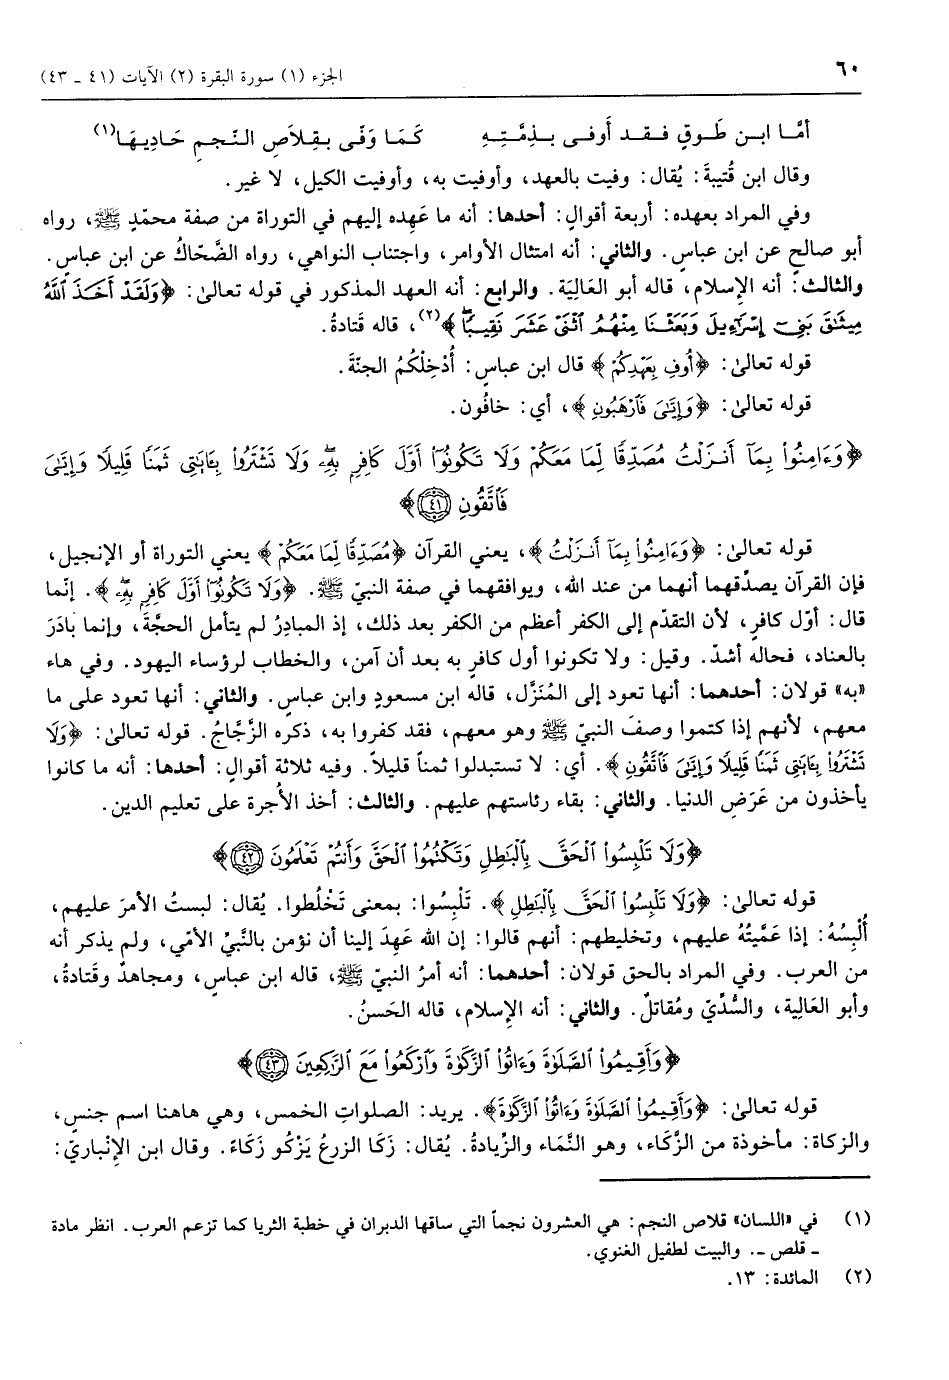 ٦٠
الجزء (١) سورة البقرة (٢) الآيات (٤١ ـ ٤٣)
أمَّا ابـن طَـوقٍ فـقـد أَوفـى بـذِمَّـتِـهِ كَـمَـا وَفَّـى بـقِـلاَصِ الـنَّـجـمِ حَـادِيـهَـا(١)
وقال ابن قُتيبةَ: يُقال: وفيت بالعهد، وأوفيت به، وأوفيت الكيل، لا غير.
وفي المراد بعهده: أربعة أقوالٍ: أحدها: أنه ما عَهِده إليهم في التوراة من صفة محمّدٍ ﷺ، رواه
أبو صالحٍ عن ابن عباسٍ. والثاني: أنه امتثال الأوامر، واجتناب النواهي، رواه الضَّحّاكُ عن ابن عباسٍ.
والثالث: أنه الإِسلام، قاله أبو العَاليَة. والرابع: أنه العهد المذكور في قوله تعالىٰ: ﴿وَلَقَدْ أَخَذَ ٱللَّهُ
مِيثَٰقَ بَنِىٓ إِسْرَٰٓءِيلَ وَبَعَثْنَا مِنْهُمُ ٱثْنَىْ عَشَرَ نَقِيبًا ۖ﴾(٢)، قاله قَتادةُ.
قوله تعالىٰ: ﴿أُوفِ بِعَهْدِكُمْ﴾ قال ابن عباسٍ: أُدْخِلْكُمُ الجنّةَ.
قوله تعالىٰ: ﴿وَإِيَّٰىَ فَٱرْهَبُونِ﴾، أي: خافُون.
﴿وَءَامِنُوا۟ بِمَآ أَنزَلْتُ مُصَدِّقًا لِّمَا مَعَكُمْ وَلَا تَكُونُوٓا۟ أَوَّلَ كَافِرٍۭ بِهِۦ ۖ وَلَا تَشْتَرُوا۟ بِـَٔايَٰتِى ثَمَنًا قَلِيلًا وَإِيَّٰىَ
فَٱتَّقُونِ ٤١﴾
قوله تعالىٰ: ﴿وَءَامِنُوا۟ بِمَآ أَنزَلْتُ﴾، يعني القرآن ﴿مُصَدِّقًا لِّمَا مَعَكُمْ﴾ يعني التوراة أو الإنجيل،
فإن القرآن يصدِّقهما أنهما من عند الله، ويوافقهما في صفة النبيّ ﷺ. ﴿وَلَا تَكُونُوٓا۟ أَوَّلَ كَافِرٍۭ بِهِۦ ۖ﴾. إنّما
قال: أوّل كافرٍ، لأن التقدّم إلى الكفر أعظم من الكفر بعد ذلك، إذ المبادِرُ لم يتأمل الحجَّةَ، وإنما بادَرَ
بالعناد، فحاله أشدّ. وقيل: ولا تكونوا أول كافرٍ به بعد أن آمن، والخطاب لرؤساء اليهود. وفي هاء
«به» قولان: أحدهما: أنها تعود إلى المُنَزَّل، قاله ابن مسعودٍ وابن عباسٍ. والثاني: أنها تعود على ما
معهم، لأنهم إذا كتموا وصفَ النبيّ ﷺ وهو معهم، فقد كفروا به، ذكره الزَّجَّاجُ. قوله تعالىٰ: ﴿وَلَا
تَشْتَرُوا۟ بِـَٔايَٰتِى ثَمَنًا قَلِيلًا وَإِيَّٰىَ فَٱتَّقُونِ﴾. أي: لا تستبدلوا ثمناً قليلاً. وفيه ثلاثة أقوالٍ: أحدها: أنه ما كانوا
يأخذون من عَرَضِ الدنيا. والثاني: بقاء رئاستهم عليهم. والثالث: أخذ الأُجرة على تعليم الدين.
﴿وَلَا تَلْبِسُوا۟ ٱلْحَقَّ بِٱلْبَٰطِلِ وَتَكْتُمُوا۟ ٱلْحَقَّ وَأَنتُمْ تَعْلَمُونَ ٤٢﴾
قوله تعالىٰ: ﴿وَلَا تَلْبِسُوا۟ ٱلْحَقَّ بِٱلْبَٰطِلِ﴾. تَلْبِسُوا: بمعنى تَخْلُطوا. يُقال: لبستُ الأمرَ عليهم،
أُلْبِسُهُ: إذا عَمَّيتُهُ عليهم، وتخليطهم: أنهم قالوا: إن الله عَهِدَ إلينا أن نؤمن بالنَّبيِّ الأمّي، ولم يذكر أنه
من العرب. وفي المراد بالحق قولان: أحدهما: أنه أمرُ النبيّ ﷺ، قاله ابن عباسٍ، ومجاهدٌ وقَتادةُ،
وأبو العَالِية، والسُّدِّيّ ومُقاتلٌ. والثاني: أنه الإِسلام، قاله الحَسنُ.
﴿وَأَقِيمُوا۟ ٱلصَّلَوٰةَ وَءَاتُوا۟ ٱلزَّكَوٰةَ وَٱرْكَعُوا۟ مَعَ ٱلرَّٰكِعِينَ ٤٣﴾
قوله تعالىٰ: ﴿وَأَقِيمُوا۟ ٱلصَّلَوٰةَ وَءَاتُوا۟ ٱلزَّكَوٰةَ﴾. يريد: الصلواتِ الخمس، وهي هاهنا اسم جنسٍ،
والزكاة: مأخوذة من الزَّكاء، وهو النَّمَاء والزِّيادةُ. يُقال: زَكَا الزرعُ يَزْكُو زَكَاءً. وقال ابن الإنباريّ:
(١) في «اللسان» قلاص النجم: هي العشرون نجماً التي ساقها الدبران في خطبة الثريا كما تزعم العرب. انظر مادة
ـ قلص ـ. والبيت لطفيل الغنوي.
(٢) المائدة: ١٣.